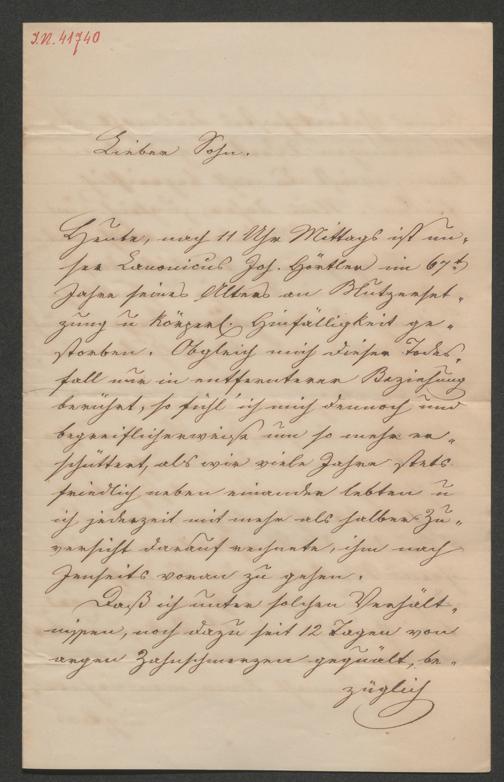 I.N. 41740
Lieber Sohn.
Heute, nach 11 Uhr Mittags ist un-
ser Canonicus Joh. Hörtler im 67t
Jahre seines Alters an Blutzerset-
zung u körperl. Hinfälligkeit ge-
storben. Obgleich mich dieser Todes-
fall nur in entfernterer Beziehung
berührt, so fühl' ich mich dennoch und
begreiflicherweise um so mehr er-
schüttert, als wir viele Jahre stets
friedlich neben einander lebten u
ich jederzeit mit mehr als halber Zu-
versicht darauf rechnete, ihm nach
Jenseits voran zu gehen.
Daß ich unter solchen Verhält-
nissen, noch dazu seit 12 Tagen von
argen Zahnschmerzen gequält, be-
züglich